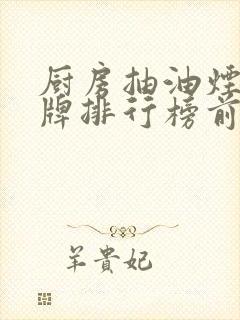 厨房抽油煙
牌排行榜前
羊貴妃